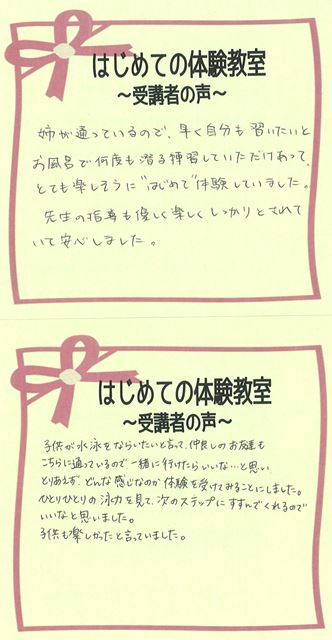 はじめての体験教室
～受講者の声～
姉が通っているので、早く自分も習いたいと
お風呂で何度も潜る練習していただけあって、
とても楽しそうに"はじめて"体験していました。
先生の指導も優しく楽しくしっかりとされて
いて安心しました。
はじめての体験教室
～受講者の声～
子供が水泳をならいたいと言って、仲良しのお友達も
こちらに通っているので一緒に行けたらいいな…と思い
とりあえず、どんな感じなのか体験を受けてみることにしました。
ひとりひとりの泳力を見て、次のステップにすすんでくれるので
いいなと思いました。
子供も楽しかったと言っていました。